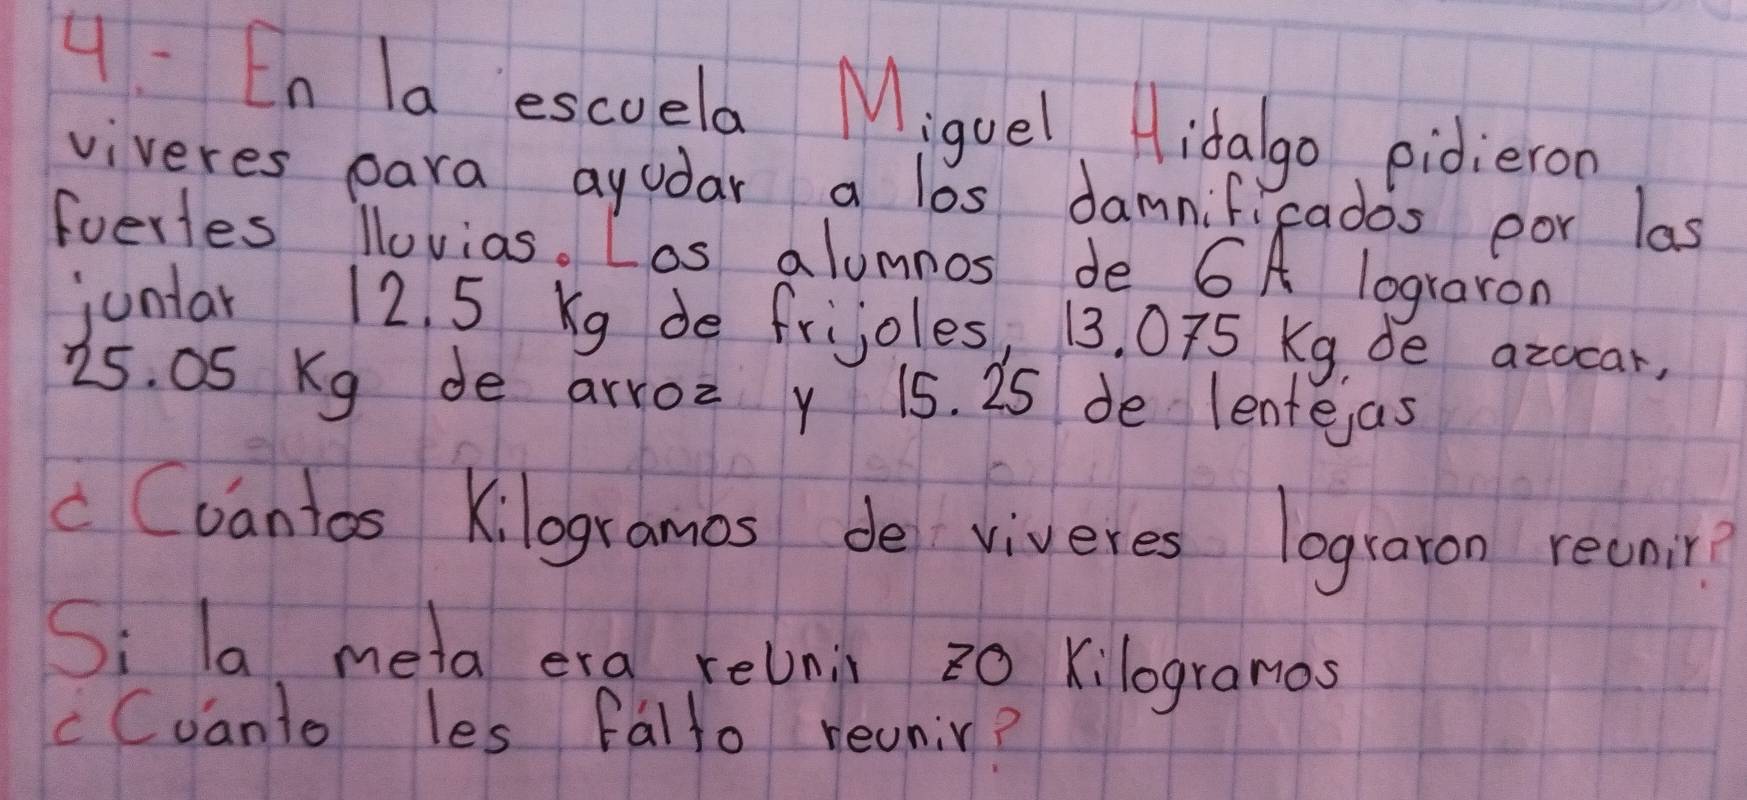 4.- En la escuela Miguel Hidalgo pidieron
viveres para ayudar a los damnificados por las
fuertes lluvias. Los alumnos de 6A lograron
juntar 12.5 Kg de frijoles, 13.075 Kg de azucar,
25.05 Kg de arroz y 15.25 de lentejas
¿Cuántos Kilogramos de viveres lograron reunir?
Si la meta era reunir 70 Kilogramos
¿Cuánto les fálto reunir?